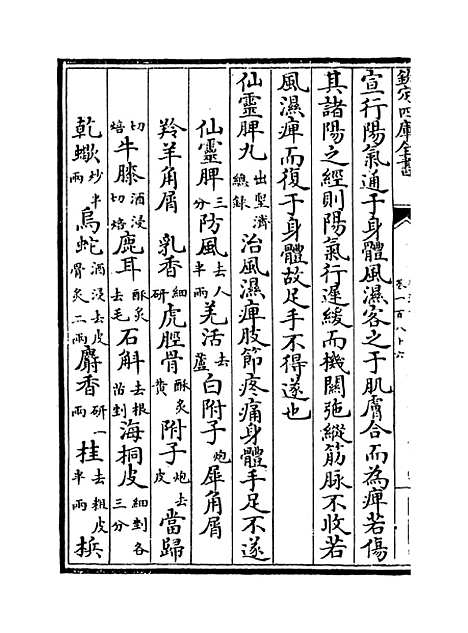 欽定四庫全書
卷一百八十六
宣行陽氣通于身體風濕客之于肌膚合而為痺若傷
其諸陽之經則陽氣行遲緩而機關弛縱筋脉不收若
風濕痺而復于身體故足手不得遂也
仙靈脾丸出聖濟總録治風濕痺肢節疼痛身體手足不遂
仙靈脾三分防風去人半兩羌活去蘆白附子炮犀角屑
羚羊角屑 乳香細研虎脛骨酥炙黄附子炮去皮當歸
切焙牛膝酒浸切焙鹿耳酥炙去毛石斛去根治剉海桐皮細剉各三分
乾蠍炒半兩烏蛇酒浸去皮骨炙二兩麝香研一兩桂去粗皮半兩梹